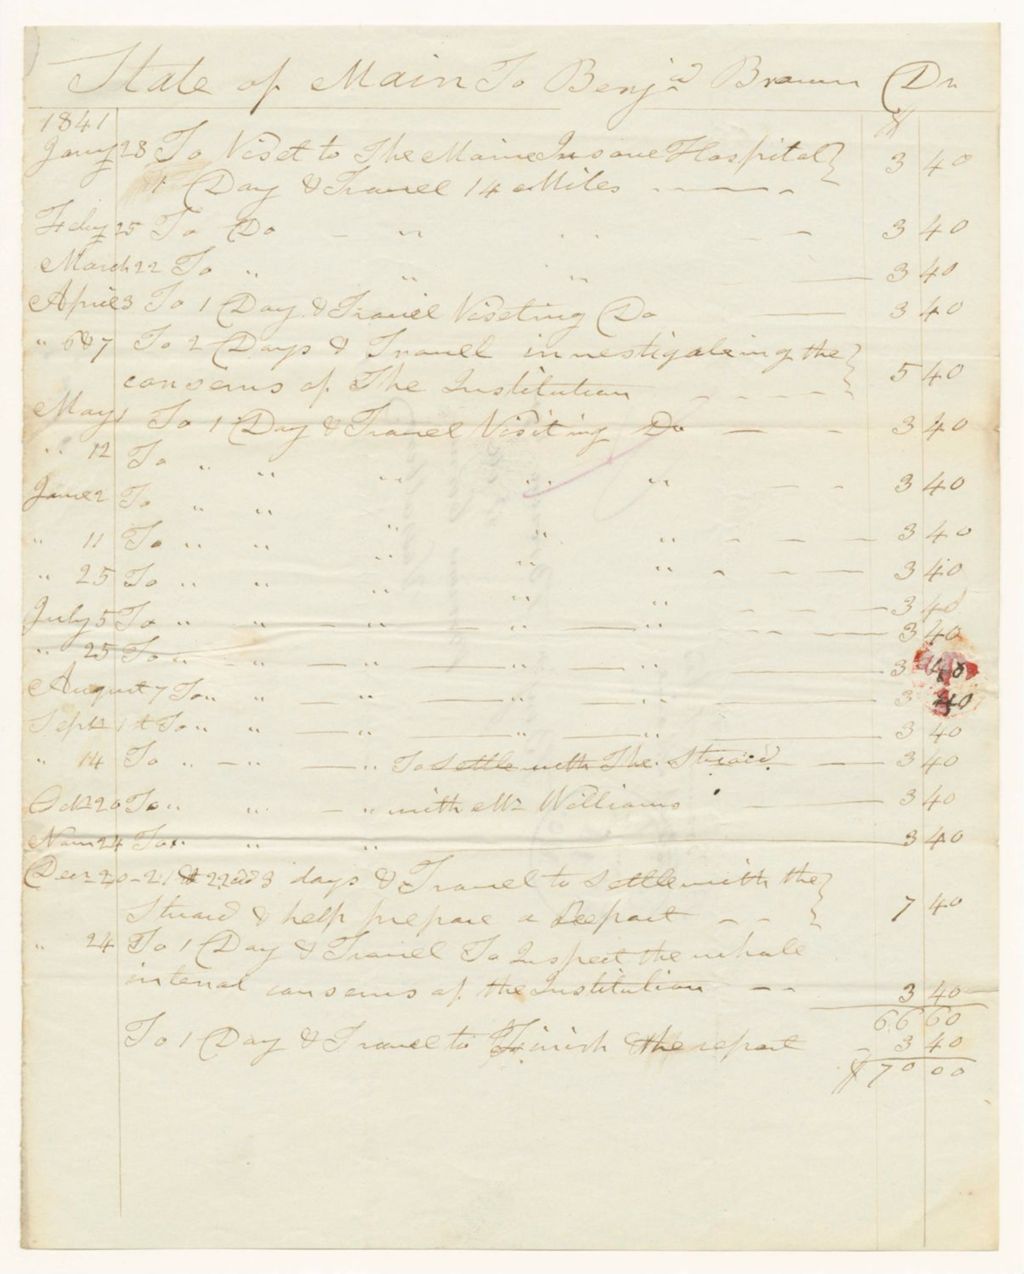 State of Main To Benj.n Brown Dr
1841 $
Jany 28 To Viset to The Maine Insane Hospital }
1 Day & Travel 14 Miles 3 40
Feby 25 To Do " " 3 40
March 22 To " " " 3 40
April 3 To 1 Day & Travel Viseting Do 3 40
" 6 & 7 To 2 Days & Travel investigateing the }
conserns of The Institution 5 40
May 1 To 1 Day & Travel Visiting Do 3 40
" 12 To " " " " " 3 40
June 2 To " " " " " 3 40
" 11 To " " " " " 3 40
" 25 To " " " " " 3 40
July 5 To " " " " 3 40
" 25 To " " " " 3 40
August 7 To " " " " " 3 40
Sept 1st To " " " " 3 40
" 14 To " " To settle with The Struard 3 40
Oct 20 To " " " with Mr Williams 3 40
Novm 24 To " " " 3 40
Decr 20-21 & 22nd 3 days & Travel to settle with the }
Struard & help prepare a Report 7 40
" 24 To 1 Day & Travel To Inspect the whole
internal conserns of the Institution 3 40
66 60
To 1 Day & Travel to Finish the report 3 40
$ 70 00